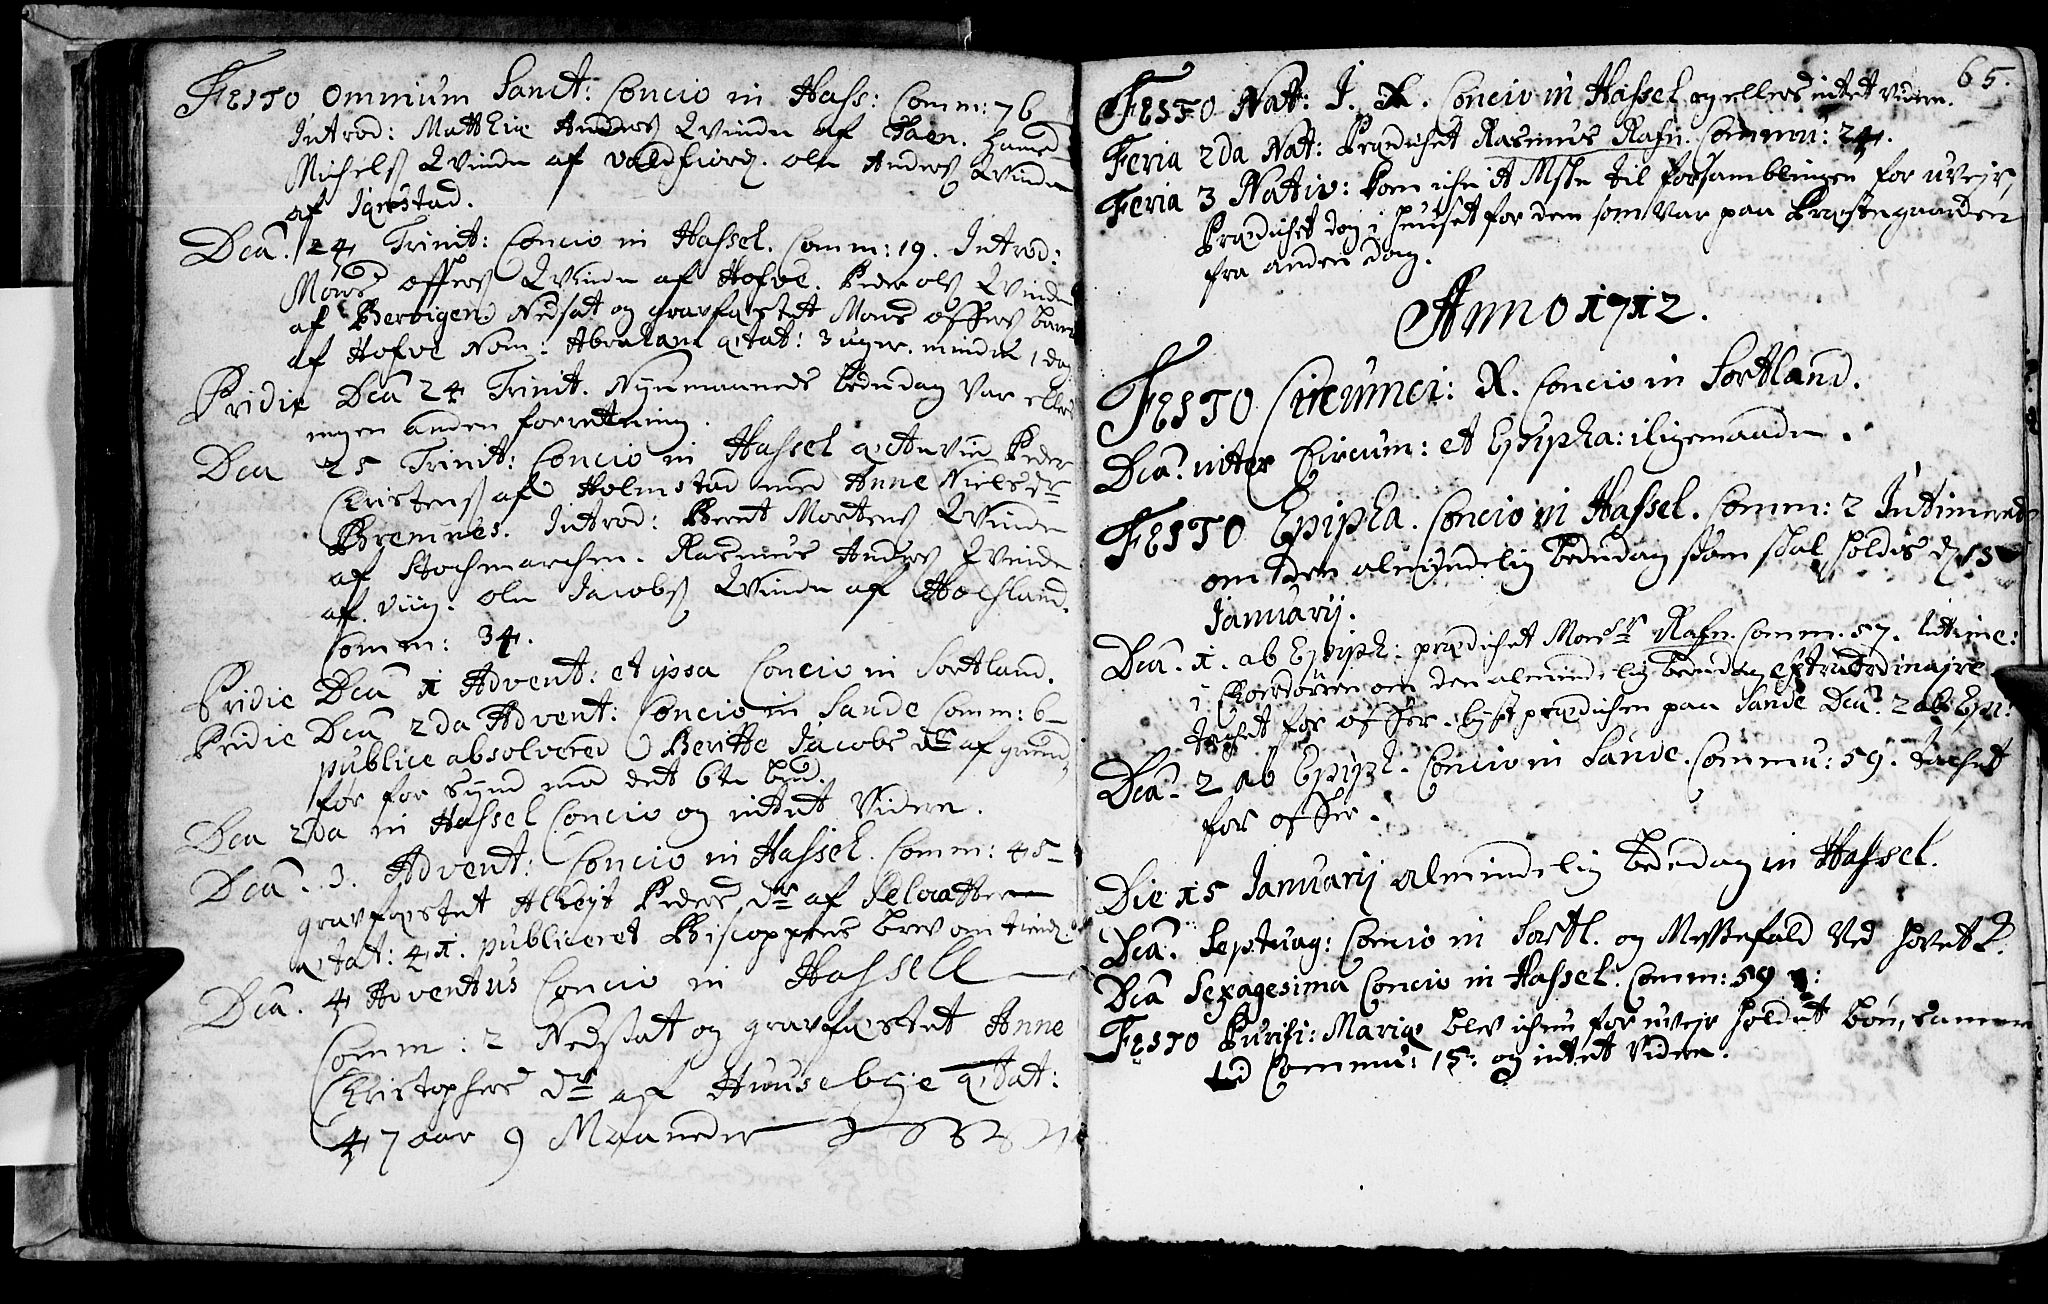 Festo omnium Sanct: Concio in Hass: Comm: 76
Introd: Matthie Anders Qvinde af Taen.
Michels Qvinde af valdfiord. ole Anders Qvinde
af Igestad.
Dca. 24 Trinit: Concio in Hassel. Comm: 19. Introd:
Mons offers Qvinde af Hofve. Peder ols Qvinde
af Berbigen. Nedsat og gravfæstet Mons offers barn
af Hofve Nom: Abraham ætat: 3 uger. minde 1 dag
Pridie Dca 24 Trinit. Nyemaaneds bededag var ellers
ingen anden forretning.
Dca 25 Trinit: Concio in Hassel Peder
Christens af Holmstad med Anne Niels dr
Bremnes. Introd: Bernt Mortens Qvinde
af Stochmarchen. Rasmus Anders Qvinde
af viig. ole Jacobs Qvinde af Hochland.
Comm: 34.
Pridie Dca 1 Advent: et ipsa Concio in Sortland.
Pridie Dca 2da Advent: Concio in Sande Comm: 6
publice absolvered Beritte Jacobs dr af grund
for for synd mod det 6te bud.
Dca 2da in Hassel Concio og intet Videre.
Dca. 3. Advent: Concio in Hassel. Comm: 45
gravfæstet Alheyt Peders dr af Pelvatten
ætat: 41. publiceret Biscoppens brev om tiend
Dca. 4 Adventus Concio in Hassell
Comm: 2 Nedsat og gravfæstet Anne
Christophers dr af Huusebye ætat:
47 aar 9 Maaneder
65.
Festo Nat: J. X. Concio in Hassel og ellers intet videre.
Feria 2da Nat: Prædichet Rasmus Rafn. Commu: 24.
Feria 3 Nativ: kom iche et Mske til forsamblingen for uvejr,
Prædichet dog i huuset for dem som var paa Præstegaarden
fra anden dag.
Anno 1712.
Festo Circumci: X. Concio in Sortland.
Dca. inter Circum: et Epipha: iligemaade.
Festo Epipha. Concio in Hassel. Comm: 2 Intimered
om den almindelig bededag som skal holdis d 15
Januarij.
Dca. 1. ab Epiph: prædichet Monsr Rafn. Comm. 57. Intime:
i Chordørren om den almindelig bededag extraordinaire
tachet for offer. lyst prædichen paa Sande Dca. 2 ab Epi:
Dca. 2 ab Epiph. Concio in Sande. Commu: 59. tachet
for offer.
Die 15 Januarij almindelig bededag in Hassel.
Dca. Septuag: Concio in Sortl. og Messefald ved hovet K.
Dca Sexagesima Concio in Hassel. Comm: 59
Festo Purifi: Mariæ blev ichun for uvejr holdet bøn, samme
tid Commu: 15. og intet Videre.